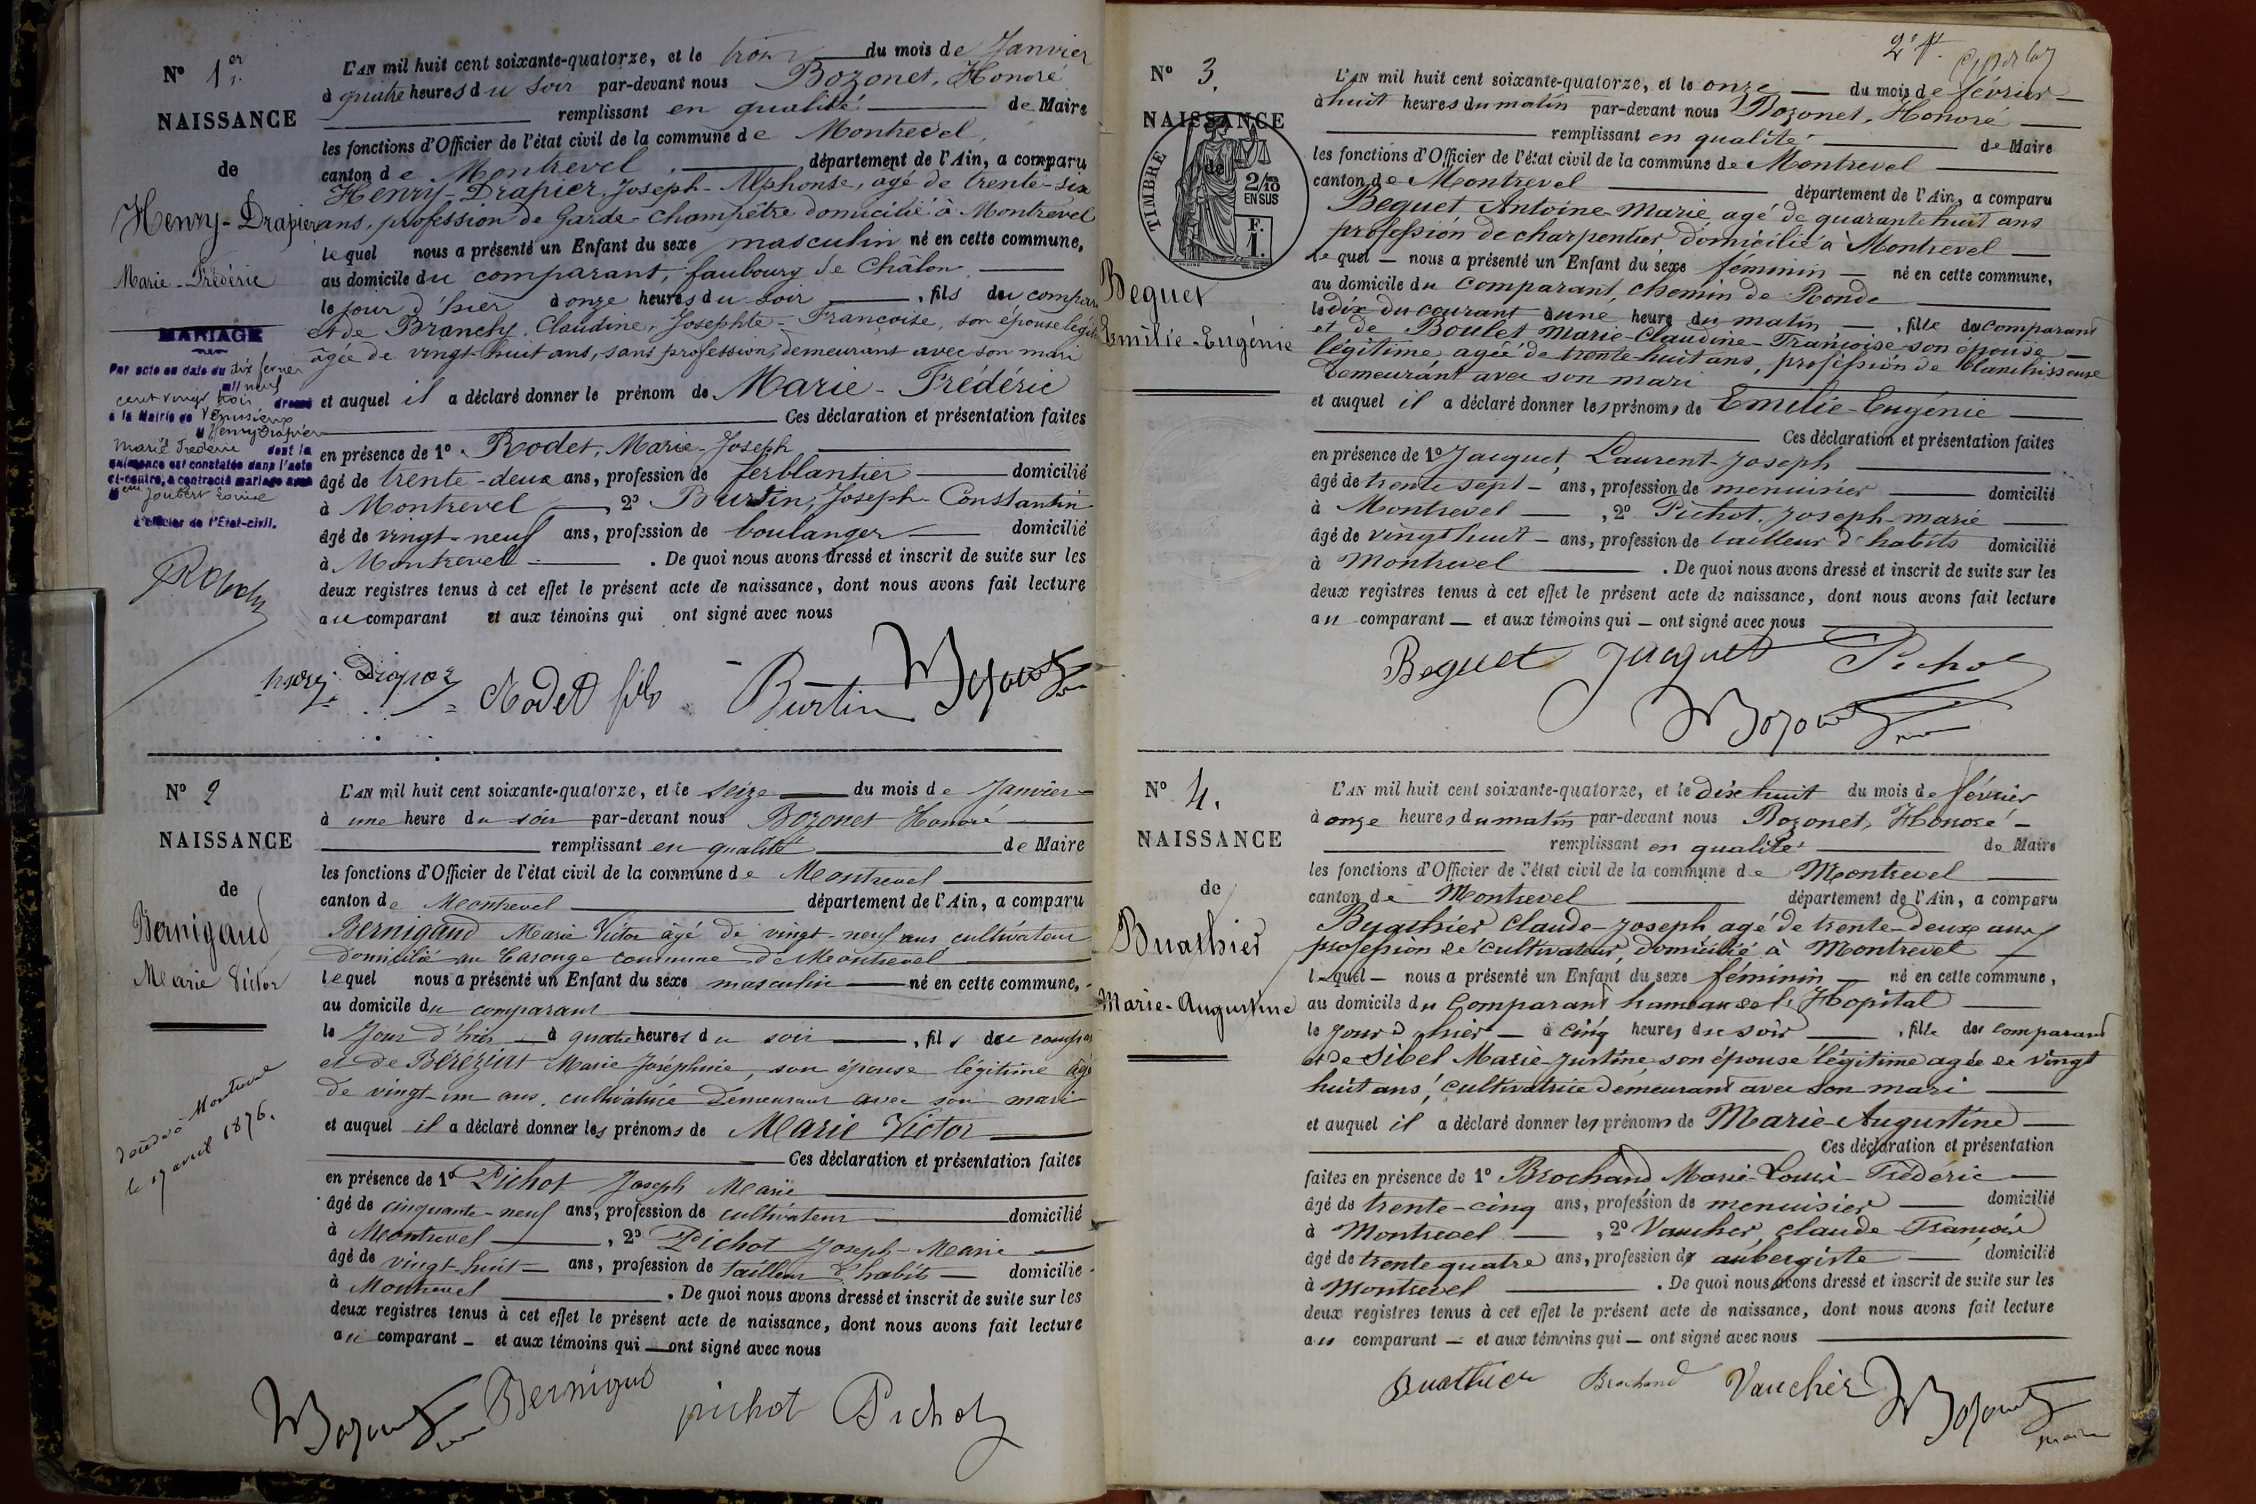 N° 1er
NAISSANCE
de
Henry-Drapier
Marie-Frédéric
MARIAGE
Par acte en date du dix février
mil neuf
cent vingt trois dressé
à la Mairie de Vénissieux
M Henry Drapier
Marie Frédéric dont la
naissance est constatée dans l'acte
ci-contre, a contracté mariage avec
Melle Joubert Louise
L'officier de l'État-civil.
L'AN mil huit cent soixante-quatorze, et le trois du mois de Janvier
à quatre heures du soir par-devant nous Bozonet, Honoré
remplissant en qualité de Maire
les fonctions d'Officier de l'état civil de la commune de Montrevel,
canton de Montrevel, département de l'Ain, a comparu
Henry-Drapier, Joseph-Alphonse, agé de trente-six
ans, profession de Garde-champêtre domicilié à Montrevel
lequel nous a présenté un Enfant du sexe masculin né en cette commune,
au domicile du comparant, faubourg de Châlon
le jour d'hier à onze heures du soir, fils du compar
et de Branchy, Claudine, Josephte-Françoise, son épouse légit
âgée de vingt-huit ans, sans profession, demeurant avec son mari
et auquel il a déclaré donner le prénom de Marie-Frédéric
Ces déclaration et présentation faites
en présence de 1° Rodet, Marie-Joseph
âgé de trente-deux ans, profession de ferblantier domicilié
à Montrevel, 2° Burtin, Joseph-Constantin
âgé de vingt-neuf ans, profession de boulanger domicilié
à Montrevel. De quoi nous avons dressé et inscrit de suite sur les
deux registres tenus à cet effet le présent acte de naissance, dont nous avons fait lecture
au comparant et aux témoins qui ont signé avec nous
henry Drapier Rodet fils Burtin Bozonet
N° 2
NAISSANCE
de
Bernigaud
Marie Victor
décédé à Montrevel
le 17 avril 1876.
L'AN mil huit cent soixante-quatorze, et le seize du mois de Janvier
à une heure du soir par-devant nous Bozonet Honoré
remplissant en qualité de Maire
les fonctions d'Officier de l'état civil de la commune de Montrevel
canton de Montrevel département de l'Ain, a comparu
Bernigaud Marie Victor âgé de vingt-neuf ans cultivateur
domicilié au commune de Montrevel
lequel nous a présenté un Enfant du sexe masculin né en cette commune,
au domicile du comparant
le jour d'hier à quatre heures du soir, fils du compar
et de Bereziat Marie Joséphine, son épouse légitime âgé
de vingt-un ans, cultivatrice demeurant avec son mari
et auquel il a déclaré donner les prénoms de Marie Victor
Ces déclaration et présentation faites
en présence de 1° Pichot Joseph Marie
âgé de cinquante-neuf ans, profession de cultivateur domicilié
à Montrevel, 2° Pichot Joseph-Marie
âgé de vingt-huit ans, profession de tailleur d'habits domicilié
à Montrevel. De quoi nous avons dressé et inscrit de suite sur les
deux registres tenus à cet effet le présent acte de naissance, dont nous avons fait lecture
au comparant et aux témoins qui ont signé avec nous
Bozonet Bernigaud pichot Pichot
N° 3.
NAISSANCE
de
TIMBRE
2/10
EN SUS
F.
1.
Beguet
Emilie-Eugénie
L'AN mil huit cent soixante-quatorze, et le onze du mois de février
à huit heures du matin par-devant nous Bozonet, Honoré
remplissant en qualité de Maire
les fonctions d'Officier de l'état civil de la commune de Montrevel
canton de Montrevel département de l'Ain, a comparu
Beguet Antoine-Marie agé de quarante huit ans
profession de charpentier domicilié à Montrevel
lequel nous a présenté un Enfant du sexe féminin né en cette commune,
au domicile du Comparant, chemin de Ronde
le dix du courant à une heure du matin, fille du comparant
et de Boulet Marie-Claudine-Françoise son épouse
légitime agée de trente huit ans, profession de blanchisseuse
demeurant avec son mari
et auquel il a déclaré donner les prénoms de Emilie-Eugénie
Ces déclaration et présentation faites
en présence de 1° Jacquet, Laurent-Joseph
âgé de trente sept ans, profession de menuisier domicilié
à Montrevel, 2° Pichot, Joseph-marie
âgé de vingt huit ans, profession de tailleur d'habits domicilié
à Montrevel. De quoi nous avons dressé et inscrit de suite sur les
deux registres tenus à cet effet le présent acte de naissance, dont nous avons fait lecture
au comparant et aux témoins qui ont signé avec nous
Beguet Jacquet Pichot
Bozonet
N° 4.
NAISSANCE
de
Buathier
Marie-Augustine
L'AN mil huit cent soixante-quatorze, et le dix huit du mois de février
à onze heures du matin par-devant nous Bozonet, Honoré
remplissant en qualité de Maire
les fonctions d'Officier de l'état civil de la commune de Montrevel
canton de Montrevel département de l'Ain, a comparu
Buathier Claude-Joseph agé de trente-deux ans
profession de cultivateur, domicilié à Montrevel
lequel nous a présenté un Enfant du sexe féminin né en cette commune,
au domicile du Comparant hameau de l'Hopital
le jour d'hier à cinq heures du soir, fille du comparant
et de Sibel Marie-Justine, son épouse légitime agée de vingt
huit ans, cultivatrice demeurant avec son mari
et auquel il a déclaré donner les prénoms de Marie-Augustine
Ces déclaration et présentation
faites en présence de 1° Brochand Marie-Louis-Fréderic
âgé de trente-cinq ans, profession de menuisier domicilié
à Montrevel, 2° Vaucher, claude-François
âgé de trente quatre ans, profession de aubergiste domicilié
à Montrevel. De quoi nous avons dressé et inscrit de suite sur les
deux registres tenus à cet effet le présent acte de naissance, dont nous avons fait lecture
au comparant et aux témoins qui ont signé avec nous
Buathier Brochand Vaucher Bozonet
maire